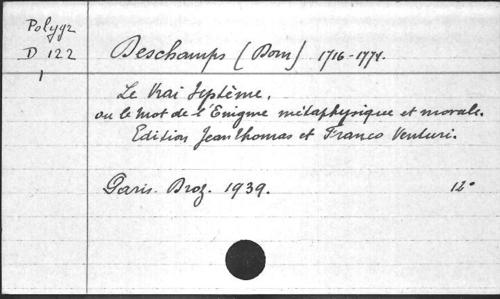 Polygr
D 122
1
Deschamps (Dom) 1716-1774.
Le Vrai Système,
ou le mot de l'Enigme métaphysique et morale.
Edition Jean Thomas et Franco Venturi.
Paris. Droz. 1939. 12°